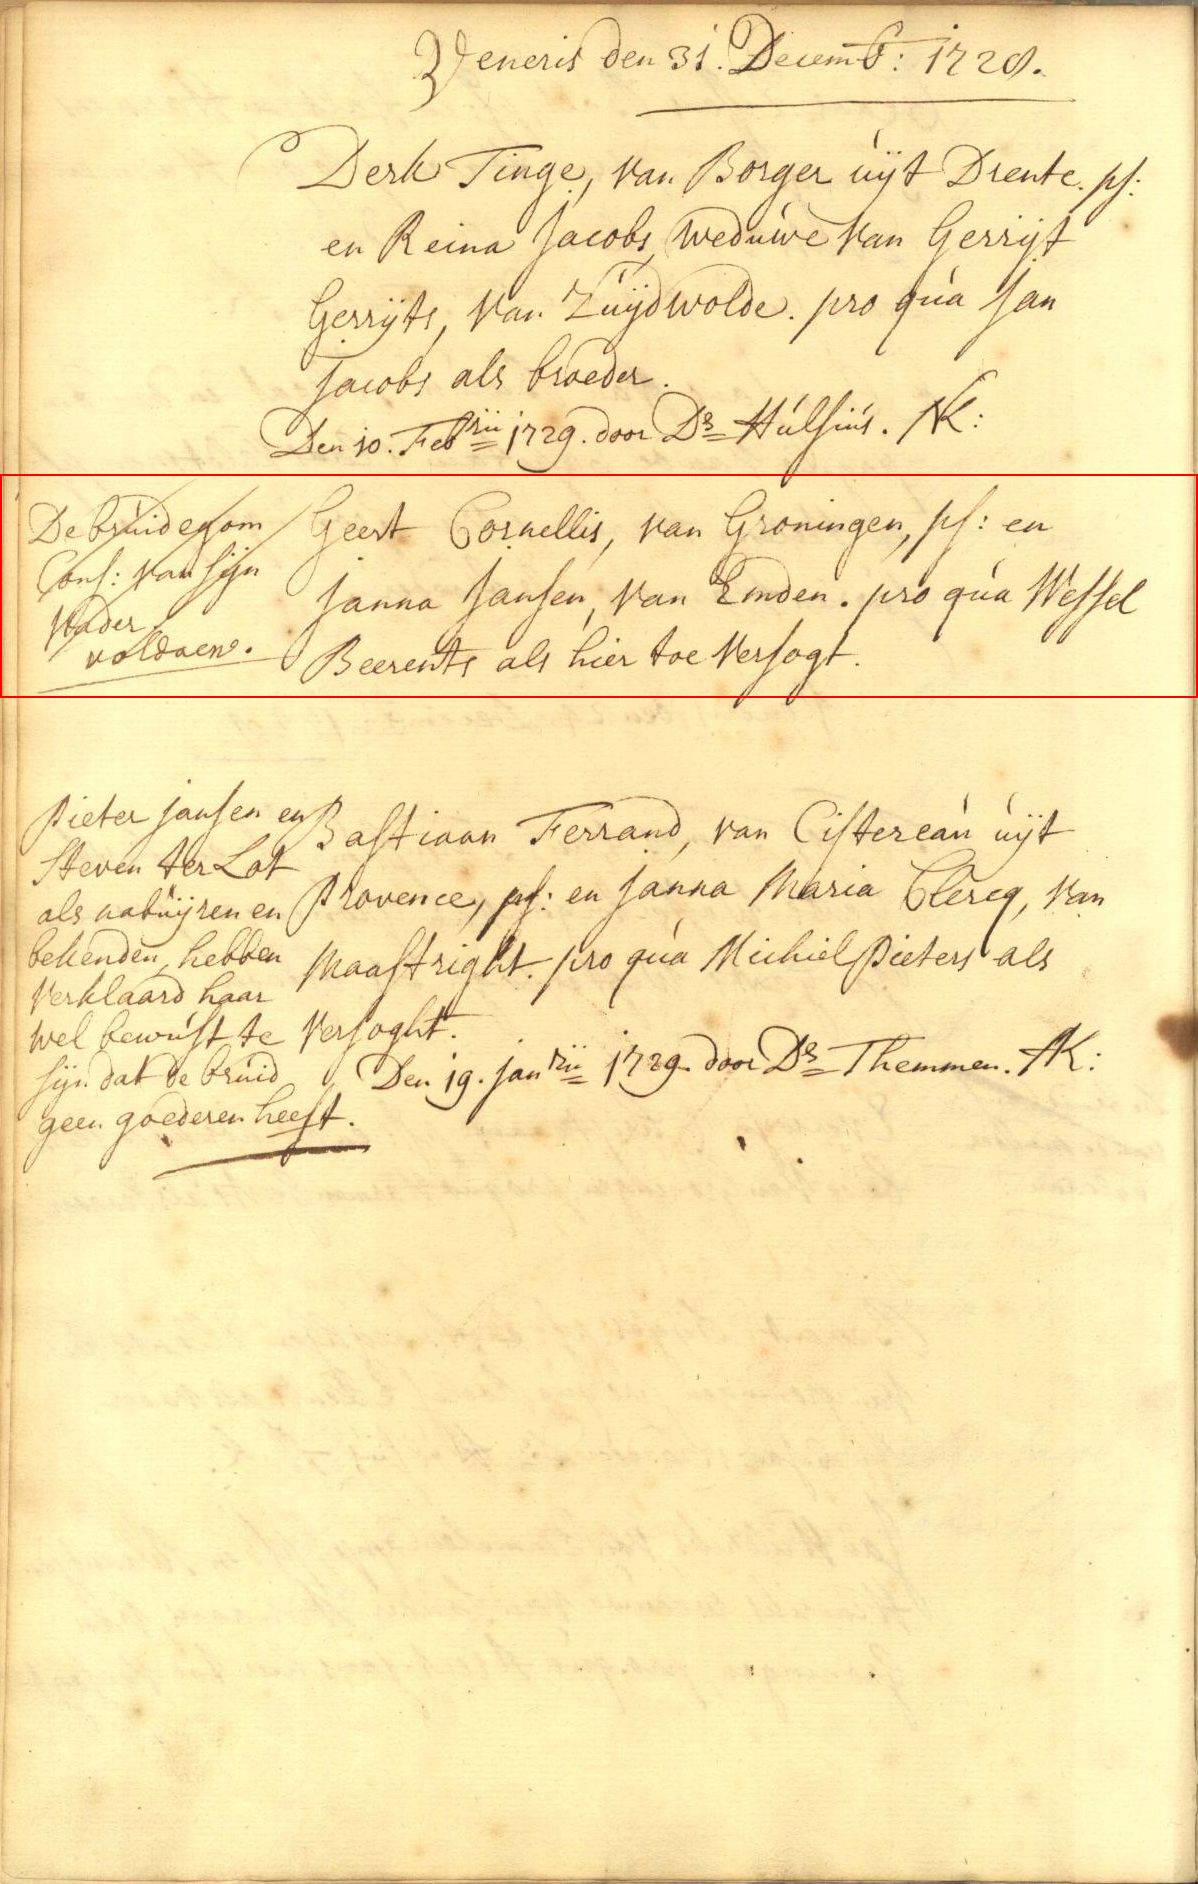 Veneris den 31. Decemb: 1728.
Derk Tinge, van Borger uÿt Drente. ps:
en Reina Jacobs, weduwe van Gerrijt
Gerrÿts, van Zuÿdwolde. pro qua Jan
Jacobs als broeder.
Den 10. Feb rii 1729. door Ds Hulsius. AK:
De bruidegom
Cons: van sijn
vader
voldaen.
Geert Cornellis, van Groningen, ps: en
Janna Jansen, van Emden. pro qua Wessel
Beerents als hier toe versogt.
Pieter Jansen en
Steven ter Lot
als nabuÿren en
bekenden, hebben
verklaard haar
wel bewust te
sijn dat de bruid
geen goederen heeft.
Bastiaan Ferrand, van Cistereau uijt
Provence, ps: en Janna Maria Clercq, van
Maastright. pro qua Michiel Pieters als
versoght.
Den 19. Jan rii 1729. door Ds Themmen. AK: